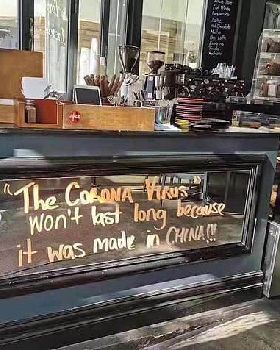 "The CORONA VIRUS"
won't last long because
it was made in CHINA!!